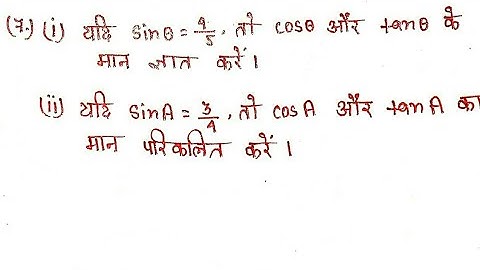 (7.) (i) यदि sinθ = 4/5, तो cosθ और tanθ के
मान ज्ञात करें।
(ii) यदि sinA = 3/4, तो cosA और tanA का
मान परिकलित करें।